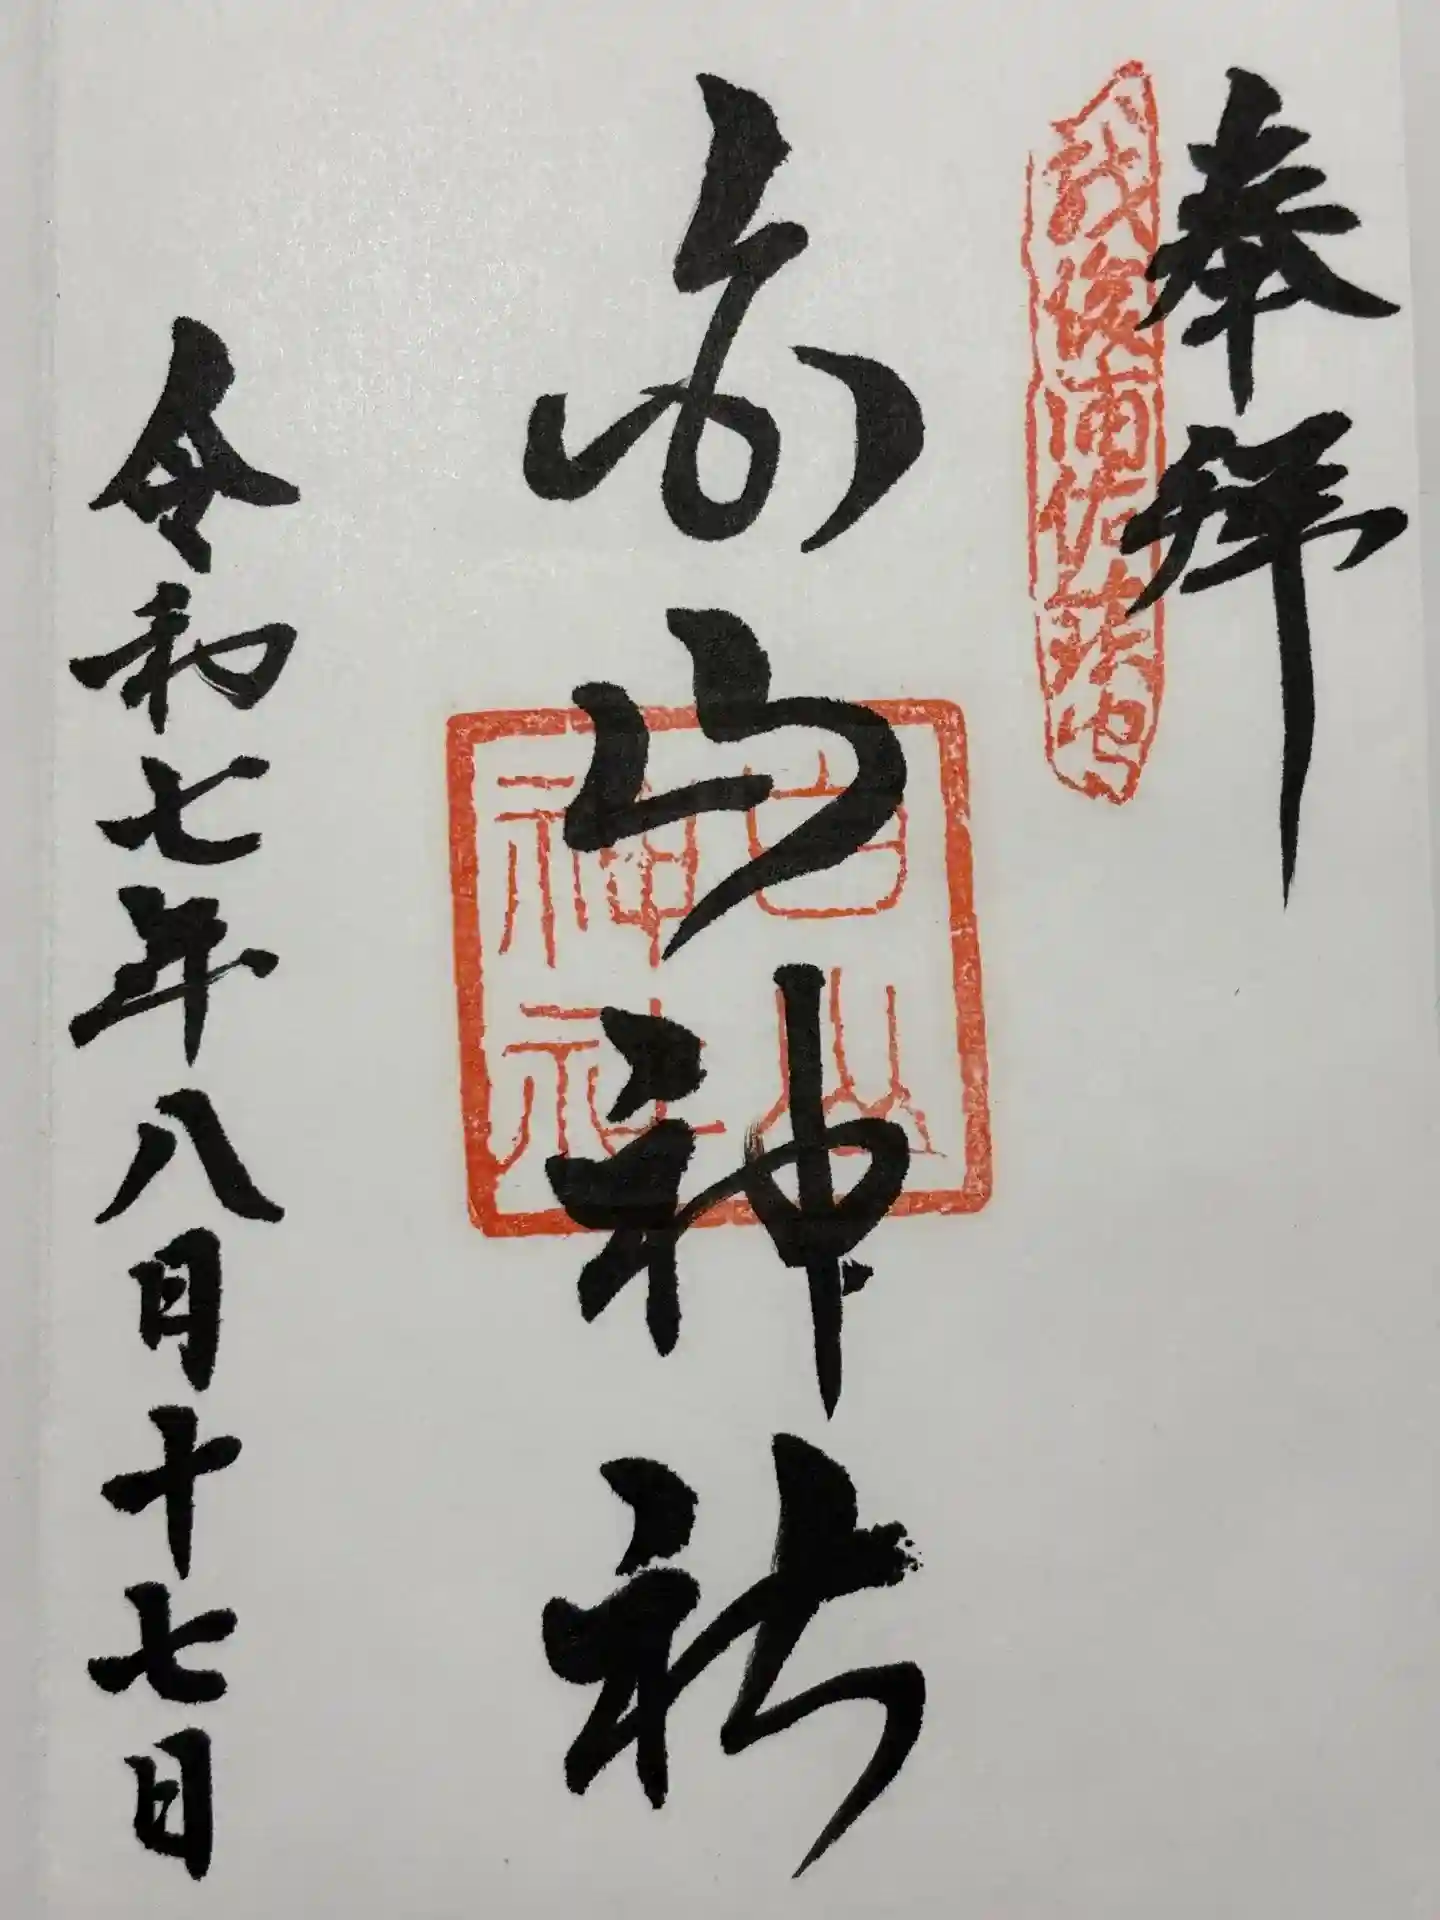 奉拝
越後浦佐
白山神社
白山
神社
令和七年八月十七日